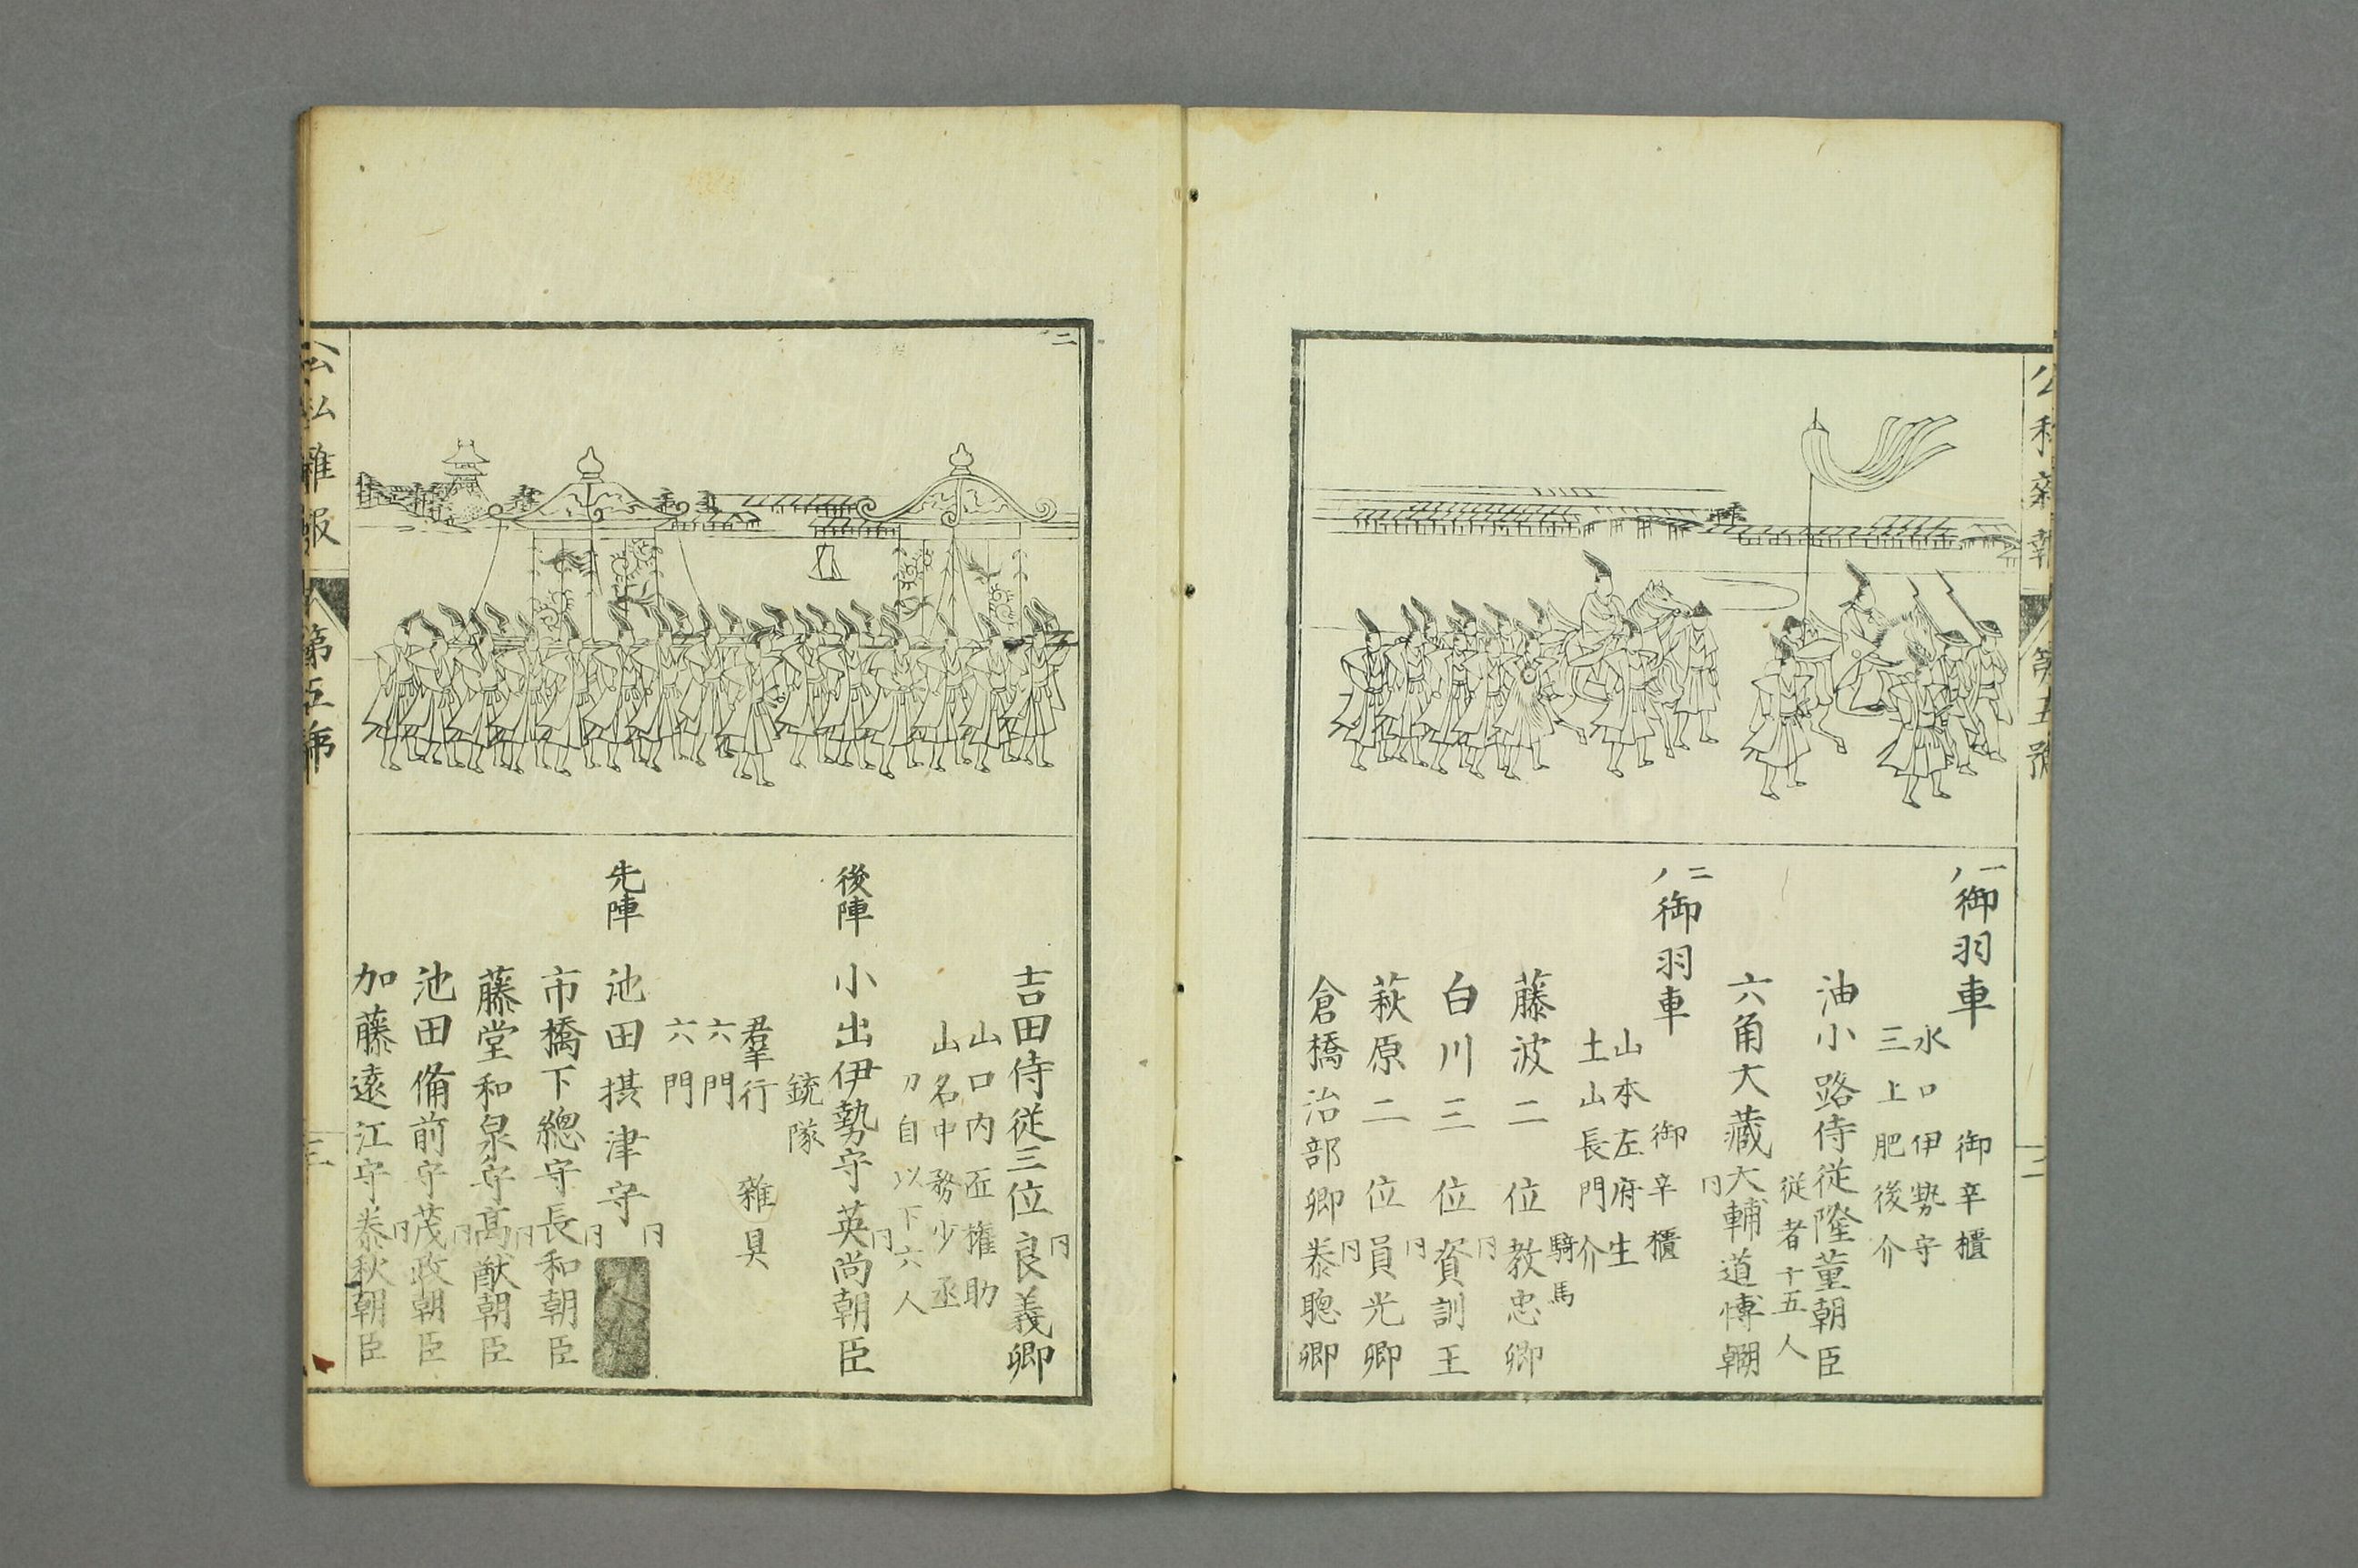 第五號
一ノ御羽車
御辛櫃
水口伊勢守
三上肥後介
油小路侍従隆董朝臣
従者十五人
六角大蔵大輔道愽朝臣
同
二ノ御羽車
御辛櫃
山本左府生
土山長門介
騎馬
藤波二位教忠卿
同
白川三位資訓王
同
萩原二位員光卿
同
倉橋治部卿泰聰卿
二
同
吉田侍従三位良義卿
山口内匠権助
山名中務少丞
刀自以下六人
同
後陣 小出伊勢守英尚朝臣
銃隊
羣行 雜具
六門
六門
同
先陣 池田摂津守
同
市橋下總守長和朝臣
同
藤堂和泉守高猷朝臣
同
池田備前守茂政朝臣
同
加藤遠江守泰秋朝臣
公私雜報 第五号
三